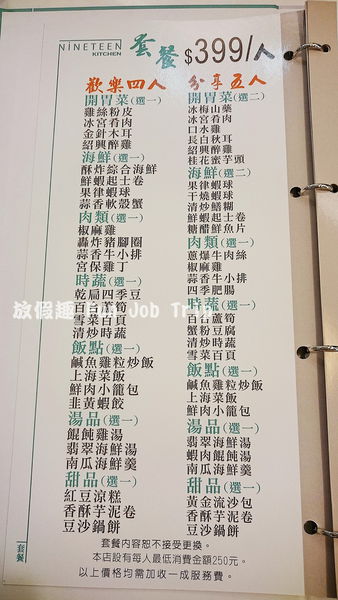 NINETEEN
KITCHEN
套餐 $399/人
歡樂四人
開胃菜(選一)
雞絲粉皮
冰宮肴肉
金針木耳
紹興醉雞
海鮮(選一)
酥炸綜合海鮮
鮮蝦起士卷
果律蝦球
蒜香軟殼蟹
肉類(選一)
椒麻雞
轟炸豬腳圈
蒜香牛小排
宮保雞丁
時蔬(選一)
乾扁四季豆
百合蘆筍
雪菜百頁
清炒時蔬
飯點(選一)
鹹魚雞粒炒飯
上海菜飯
鮮肉小籠包
韭黃蝦餃
湯品(選一)
餛飩雞湯
翡翠海鮮湯
南瓜海鮮羹
甜品(選一)
紅豆涼糕
香酥芋泥卷
豆沙鍋餅
分享五人
開胃菜(選二)
冰梅山藥
冰宮肴肉
口水雞
長白秋耳
紹興醉雞
桂花蜜芋頭
海鮮(選二)
果律蝦球
干燒蝦球
清炒鱔糊
鮮蝦起士卷
糖醋鮮魚片
肉類(選一)
蔥爆牛肉絲
椒麻雞
蒜香牛小排
四季肥腸
時蔬(選一)
百合蘆筍
蟹粉豆腐
清炒時蔬
雪菜百頁
飯點(選一)
鹹魚雞粒炒飯
上海菜飯
鮮肉小籠包
湯品(選一)
翡翠海鮮湯
蝦肉餛飩湯
南瓜海鮮羹
甜品(選一)
黃金流沙包
香酥芋泥卷
豆沙鍋餅
套餐內容恕不接受更換。
本店設有每人最低消費金額250元。
以上價格均需加收一成服務費。
套餐
放假趣 Fun Job Trip